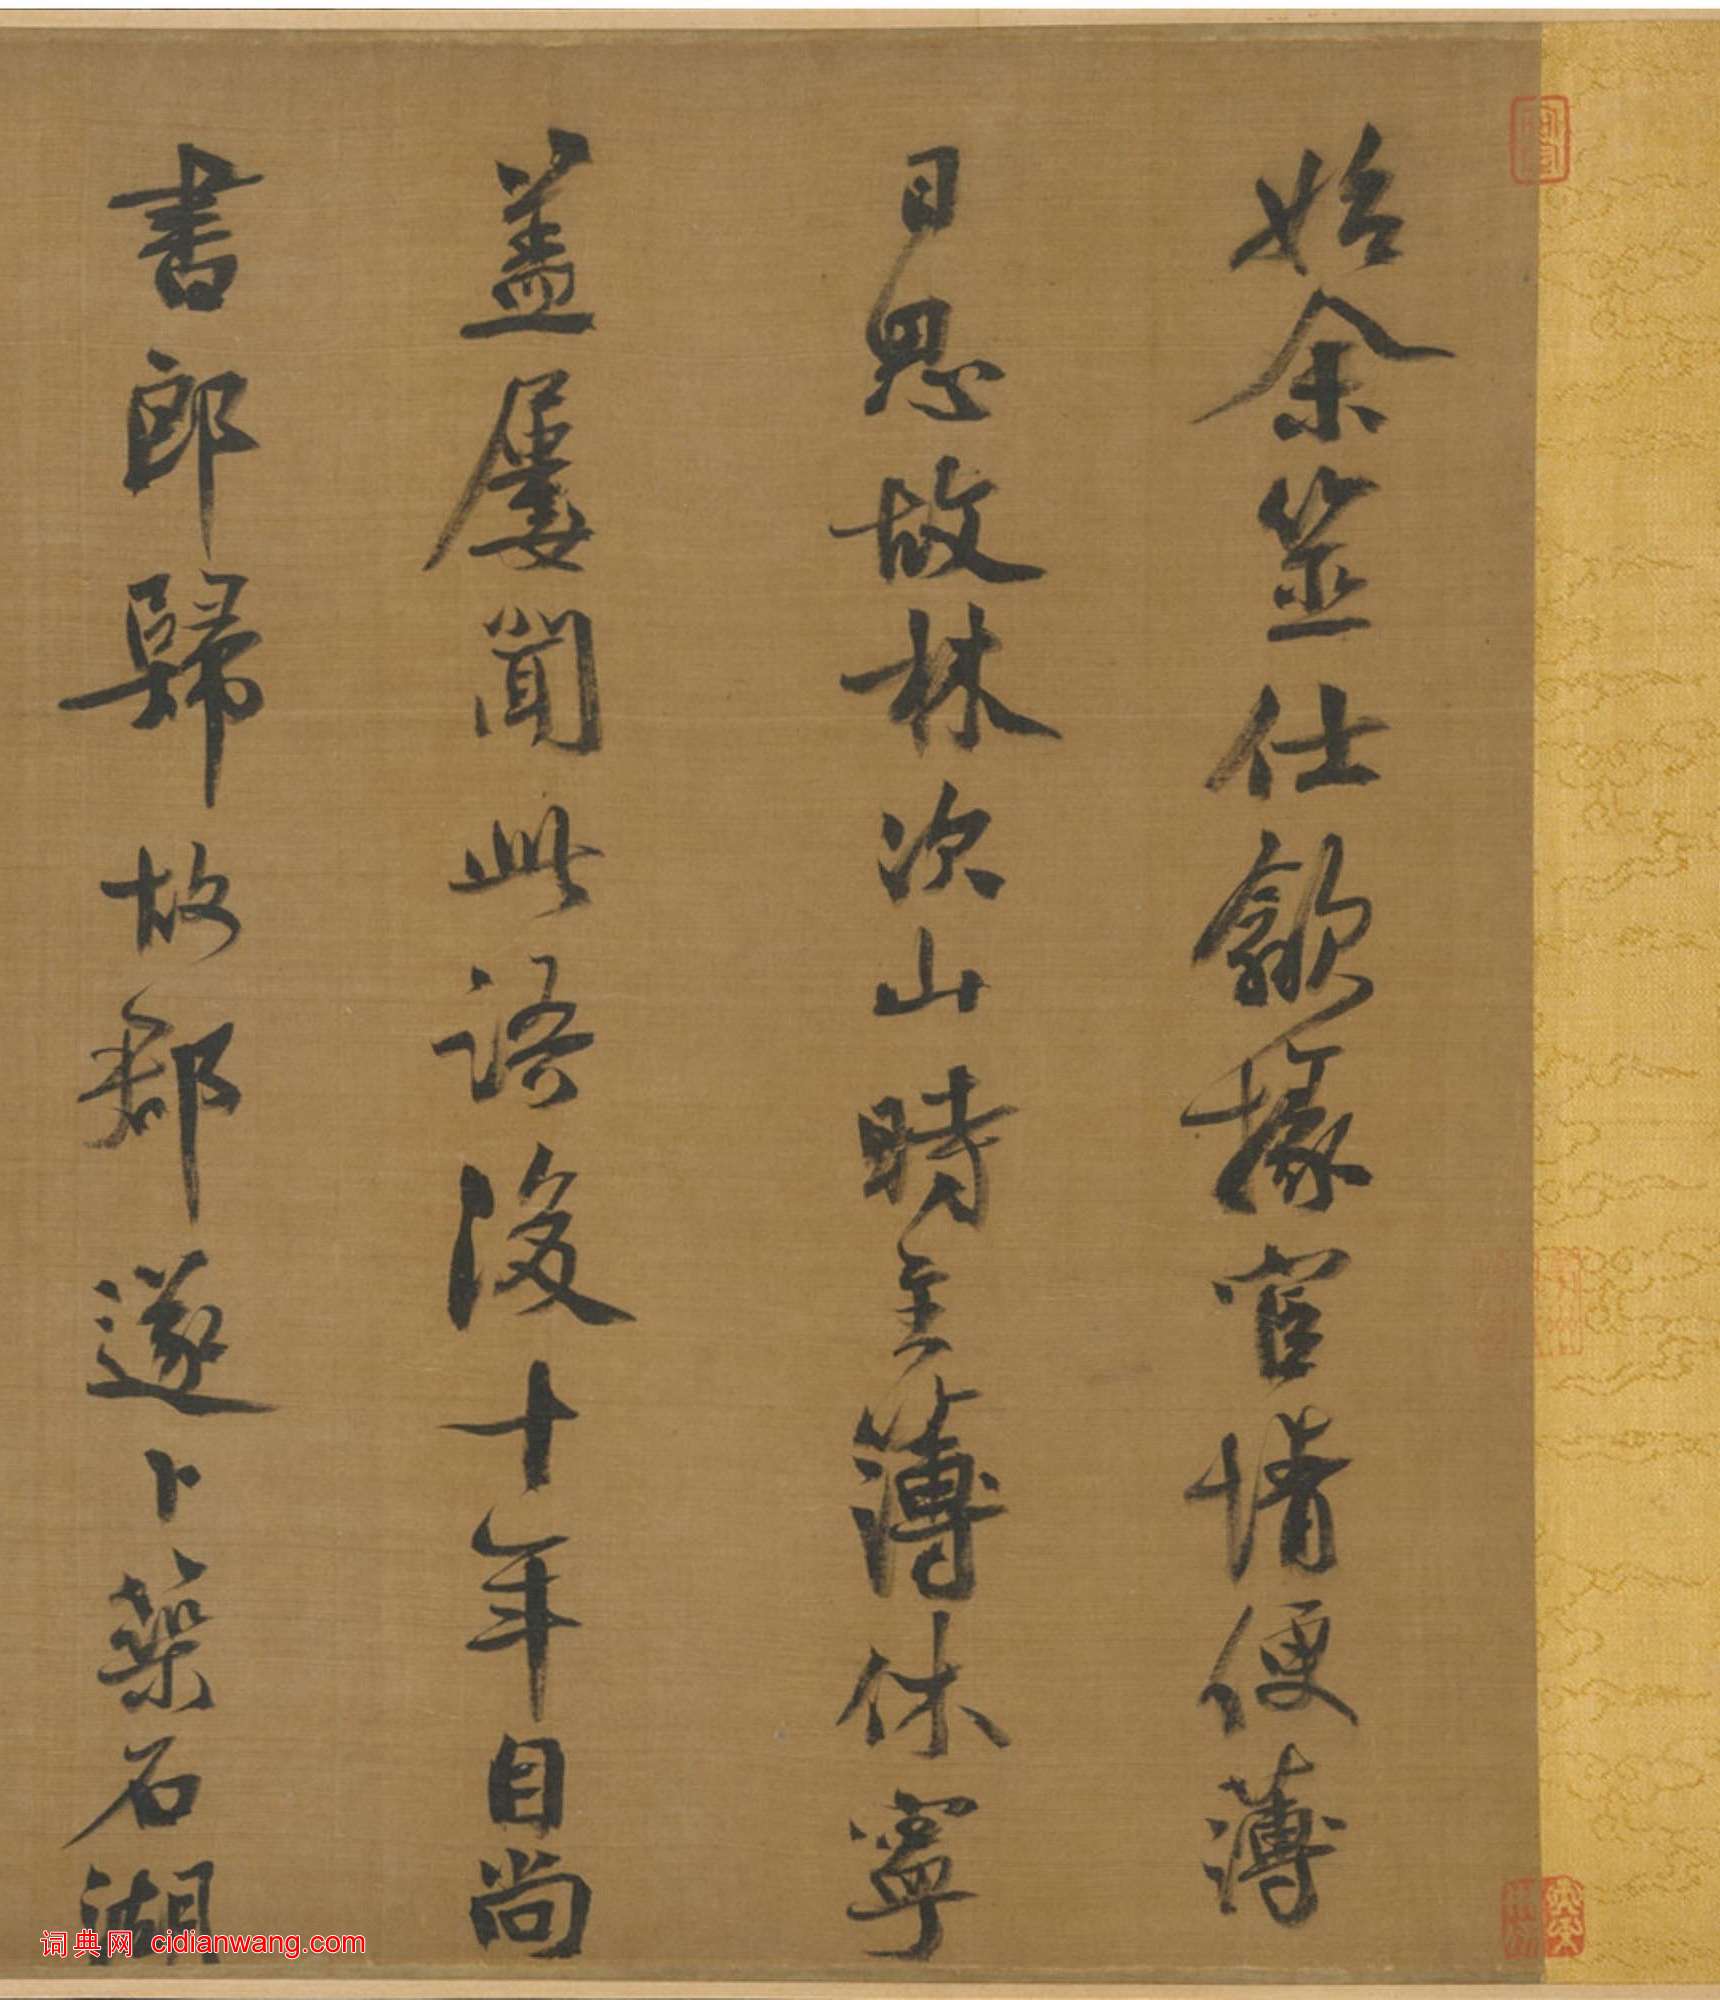 始余筮仕歙掾宦情便薄
日思故林次山時主簿休寧
盖屢聞此語後十年自尚
書郎歸故郡遂卜築石湖
词典网 cidianwang.com